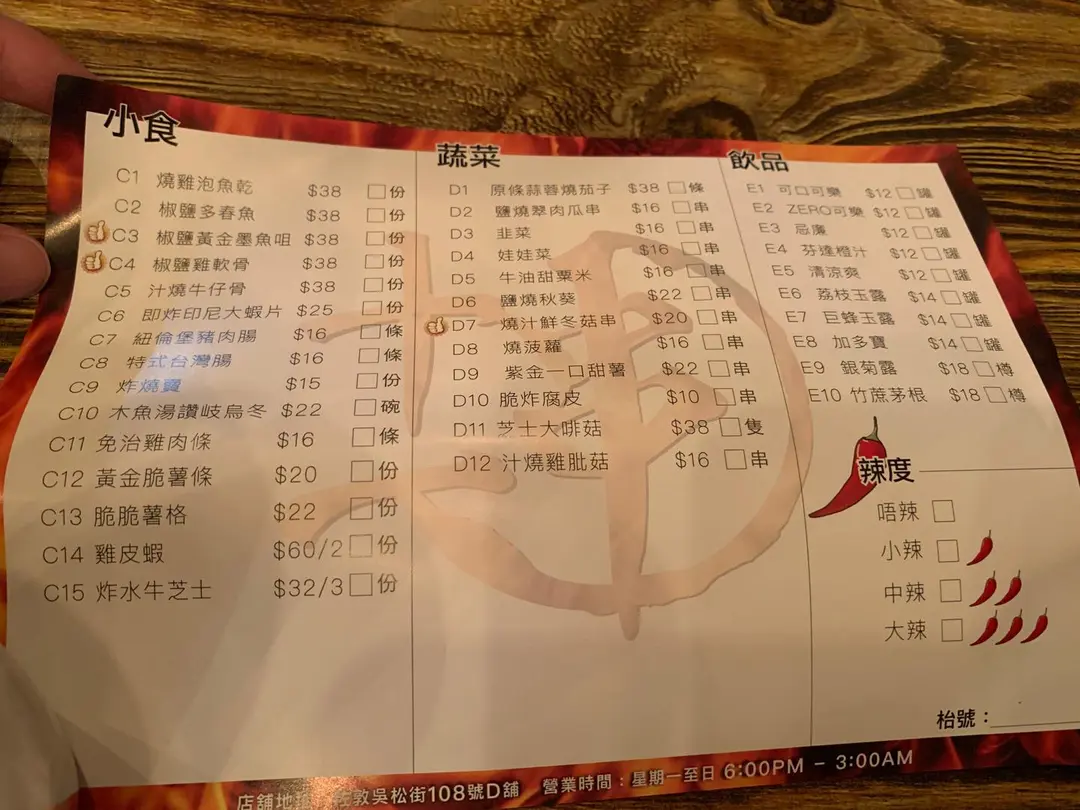 小食
C1 燒雞泡魚乾 $38 份
C2 椒鹽多春魚 $38 份
C3 椒鹽黃金墨魚咀 $38 份
C4 椒鹽雞軟骨 $38 份
C5 汁燒牛仔骨 $38 份
C6 即炸印尼大蝦片 $25 份
C7 紐倫堡豬肉腸 $16 條
C8 特式台灣腸 $16 條
C9 炸燒賣 $15 份
C10 木魚湯讃岐烏冬 $22 碗
C11 免治雞肉條 $16 條
C12 黃金脆薯條 $20 份
C13 脆脆薯格 $22 份
C14 雞皮蝦 $60/2 份
C15 炸水牛芝士 $32/3 份
蔬菜
D1 原條蒜蓉燒茄子 $38 條
D2 鹽燒翠肉瓜串 $16 串
D3 韭菜 $16 串
D4 娃娃菜 $16 串
D5 牛油甜粟米 $16 串
D6 鹽燒秋葵 $22 串
D7 燒汁鮮冬菇串 $20 串
D8 燒菠蘿 $16 串
D9 紫金一口甜薯 $22 串
D10 脆炸腐皮 $10 串
D11 芝士大啡菇 $38 隻
D12 汁燒雞肶菇 $16 串
飲品
E1 可口可樂 $12 罐
E2 ZERO可樂 $12 罐
E3 忌廉 $12 罐
E4 芬達橙汁 $12 罐
E5 清涼爽 $12 罐
E6 荔枝玉露 $14 罐
E7 巨蜂玉露 $14 罐
E8 加多寶 $14 罐
E9 銀菊露 $18 樽
E10 竹蔗茅根 $18 樽
辣度
唔辣
小辣
中辣
大辣
枱號：
店舖地址 佐敦吳松街108號D舖 營業時間：星期一至日 6:00PM - 3:00AM